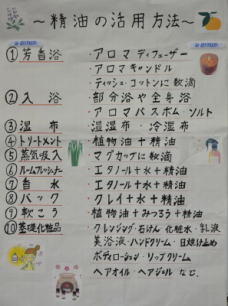 ～精油の活用方法～
①芳香浴 ・アロマディフューザー
・アロマキャンドル
・ティッシュ・コットンに数滴
②入浴 ・部分浴や全身浴
・アロマバスボム・ソルト
③湿布 ・温湿布・冷湿布
④トリートメント ・植物油＋精油
⑤蒸気吸入 ・マグカップに数滴
⑥ルームフレッシュナー ・エタノール＋水＋精油
⑦香水 ・エタノール＋水＋精油
⑧パック ・クレイ＋水＋精油
⑨軟こう ・植物油＋みつろう＋精油
⑩基礎化粧品 ・クレンジング・石けん・化粧水・乳液
美容液・ハンドクリーム・日焼け止め
ボディローション・リップクリーム
ヘアオイル・ヘアジェルなど、